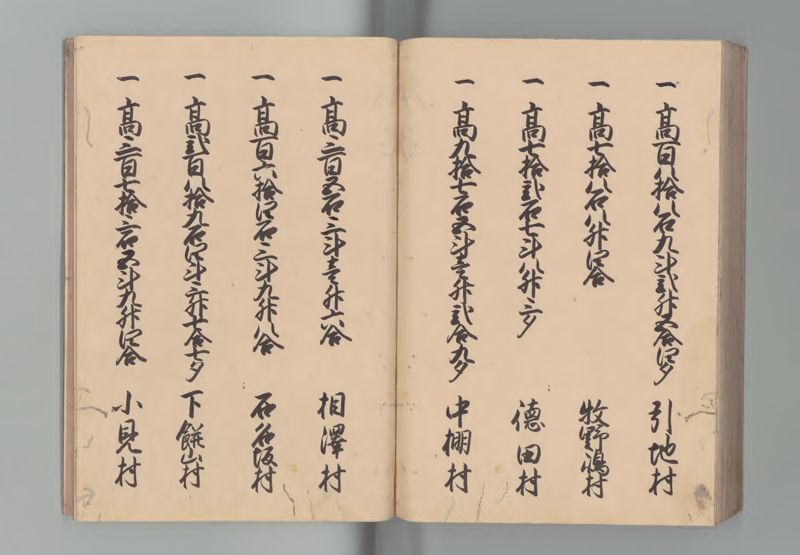 一高百八拾八石九斗弐升五合四夕 引地村
一高七拾八石八升四合 牧野嶋村
一高七拾弐石七斗八升三夕 德田村
一高九拾七石五斗壱升弐合九夕 中棚村
一高三百五石三斗壱升六合 相澤村
一高百六拾四石三斗九升八合 石名坂村
一高弐百八拾九石四斗三升七合七夕 下餅山村
一高三百七拾三石五斗九升四合 小見村